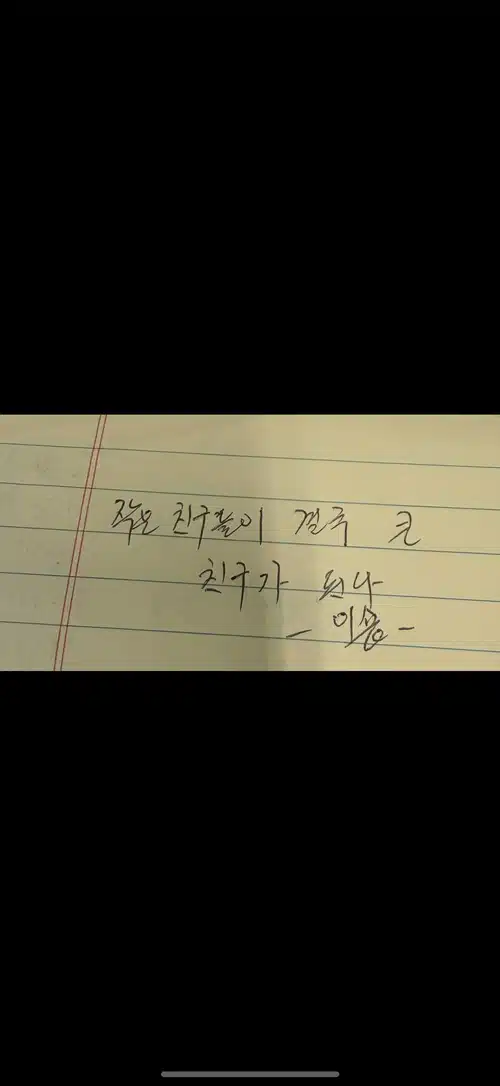 작은 친구들이 결국 큰
친구가 되나
- 이솝 -